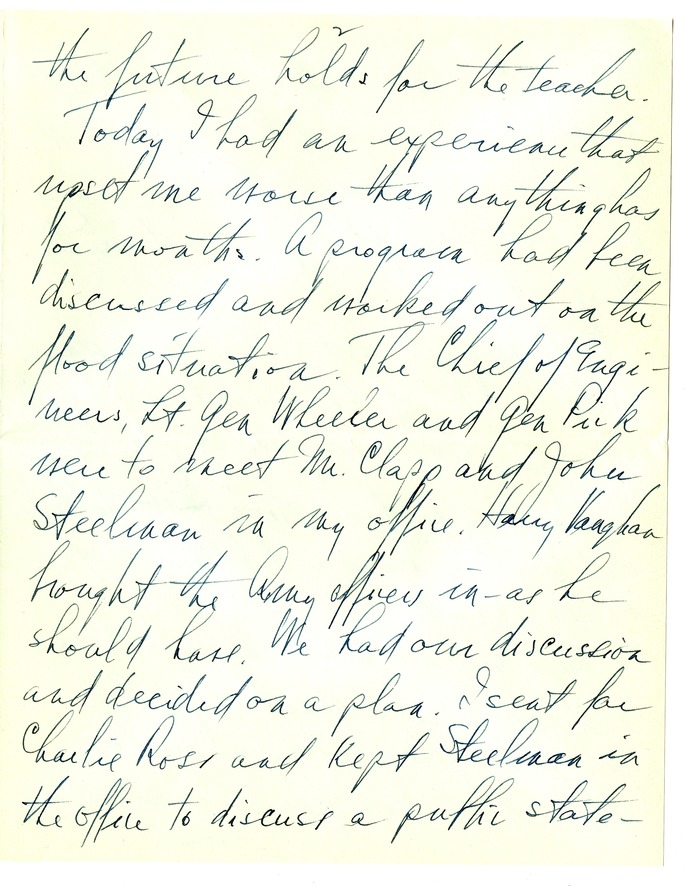 2
the future holds for the teacher.
Today I had an experience that
upset me worse than anything has
for months. A program had been
discussed and worked out on the
flood situation. The Chief of Engi-
neers, Lt. Gen Wheeler and Gen Pick
were to meet Mr. Clapp and John
Steelman in my office. Harry Vaughan
brought the Army officers in - as he
should have. We had our discussion
and decided on a plan. I sent for
Charlie Ross and kept Steelman in
the office to discuss a public state-